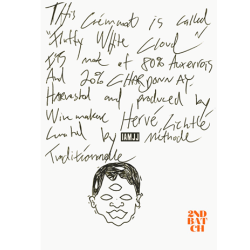 THis Crémant is called
"Fluffy White Cloud"
It's made of 80% Auxerrois
And 20% CHARDONNAY.
Harvested and produced by
Winemaker Hervé
Curated by IAMJJ Méthode
Traditionnelle
2ND
BAT
CH